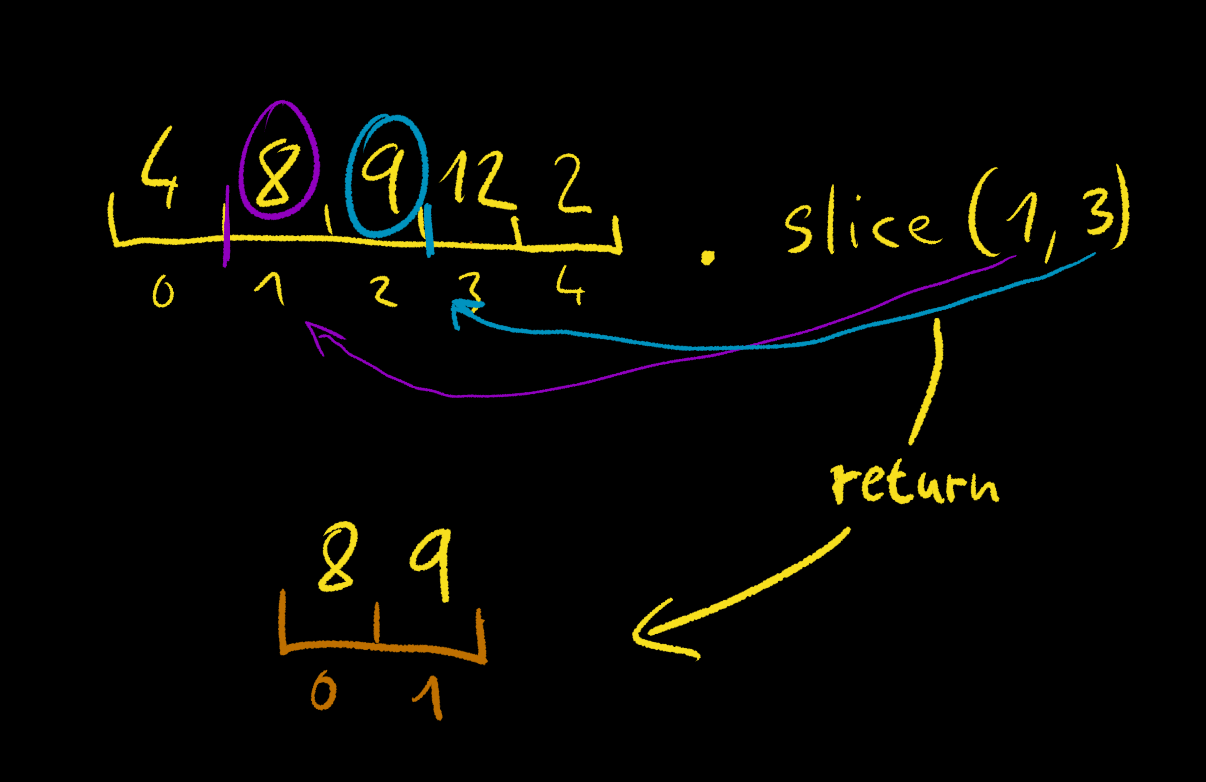 4 8 9 12 2 . slice (1, 3)
0 1 2 3 4
return
8 9
0 1